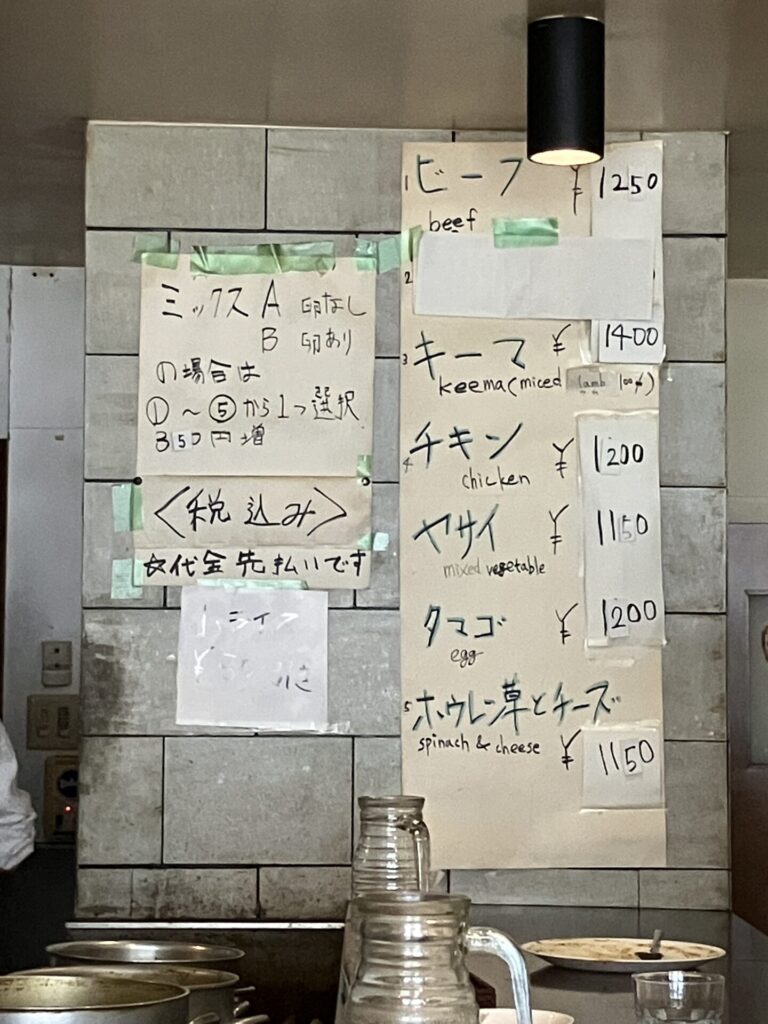 ミックス A 卵なし
B 卵あり
の場合は
①〜⑤から1つ選択
350円増
〈税込み〉
☆代金先払いです
1 ビーフ ¥1250
beef
2
3 キーマ ¥1400
keema(miced lamb 100%)
4 チキン ¥1200
chicken
ヤサイ ¥1150
mixed vegetable
タマゴ ¥1200
egg
5 ホウレン草とチーズ
spinach & cheese ¥1150